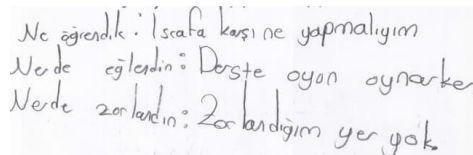 Ne öğrendik: İsrafa karşı ne yapmalıyım
Nerde eğlendin: Derste oyon oynarke
Nerde zorlandın: Zorlandığım yer yok.